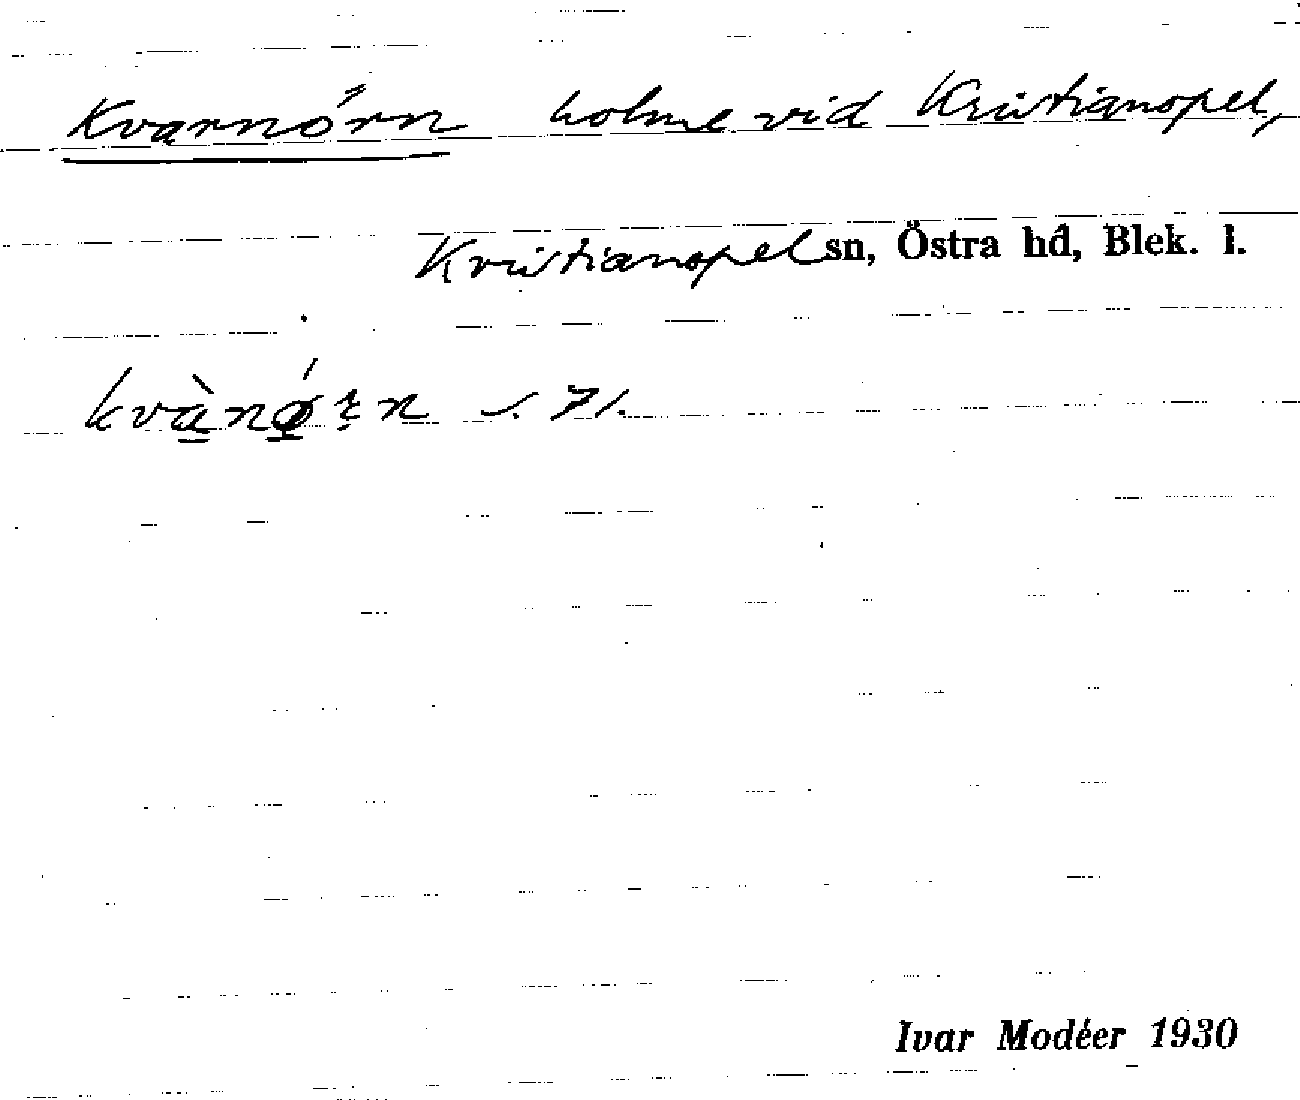 Kvarnörn holme vid Kristianopel,
Kristianopel sn, Östra hd, Blek. l.
s. 71.
Ivar Modéer 1930